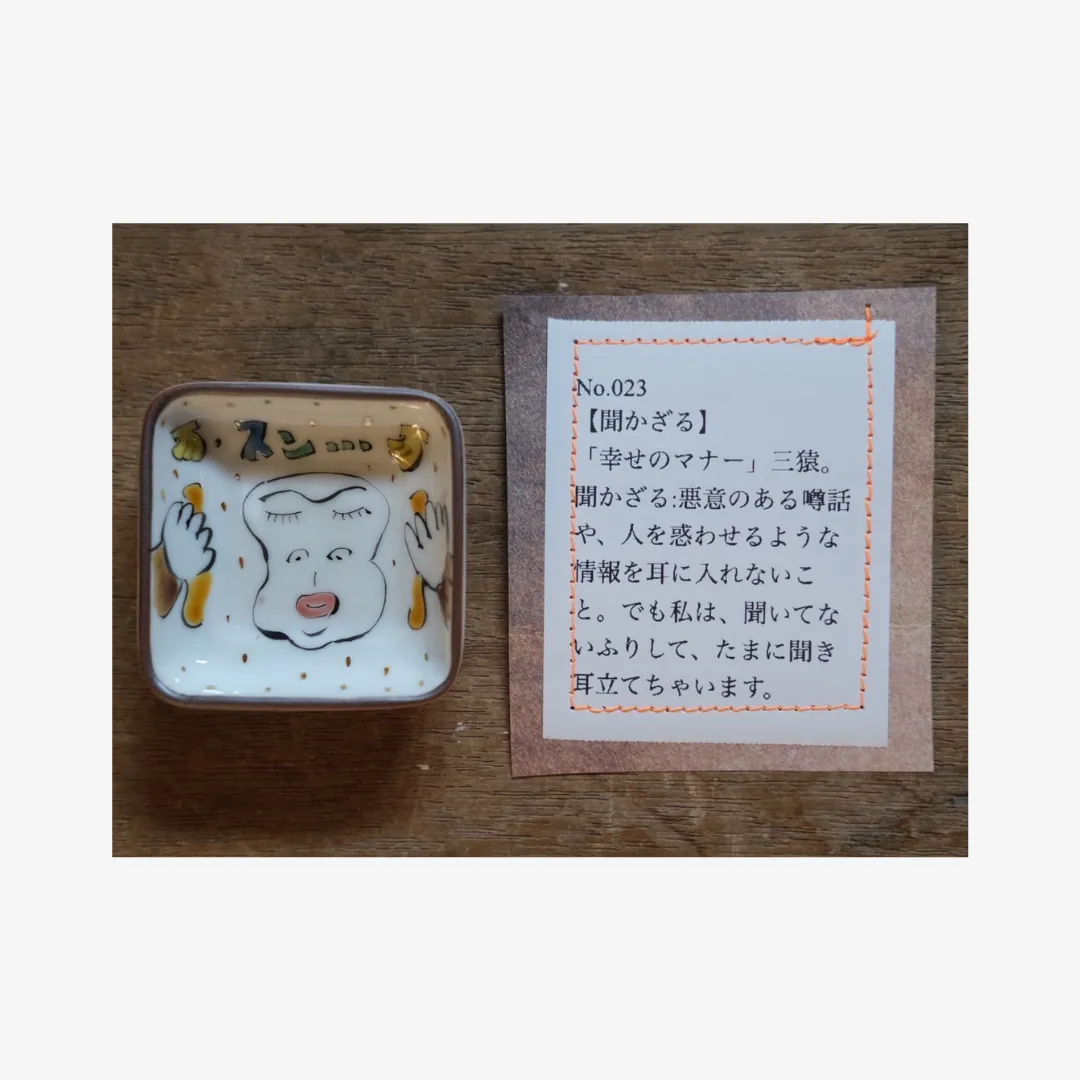 スン…
No.023
【聞かざる】
「幸せのマナー」三猿。
聞かざる:悪意のある噂話
や、人を惑わせるような
情報を耳に入れないこ
と。でも私は、聞いてな
いふりして、たまに聞き
耳立てちゃいます。